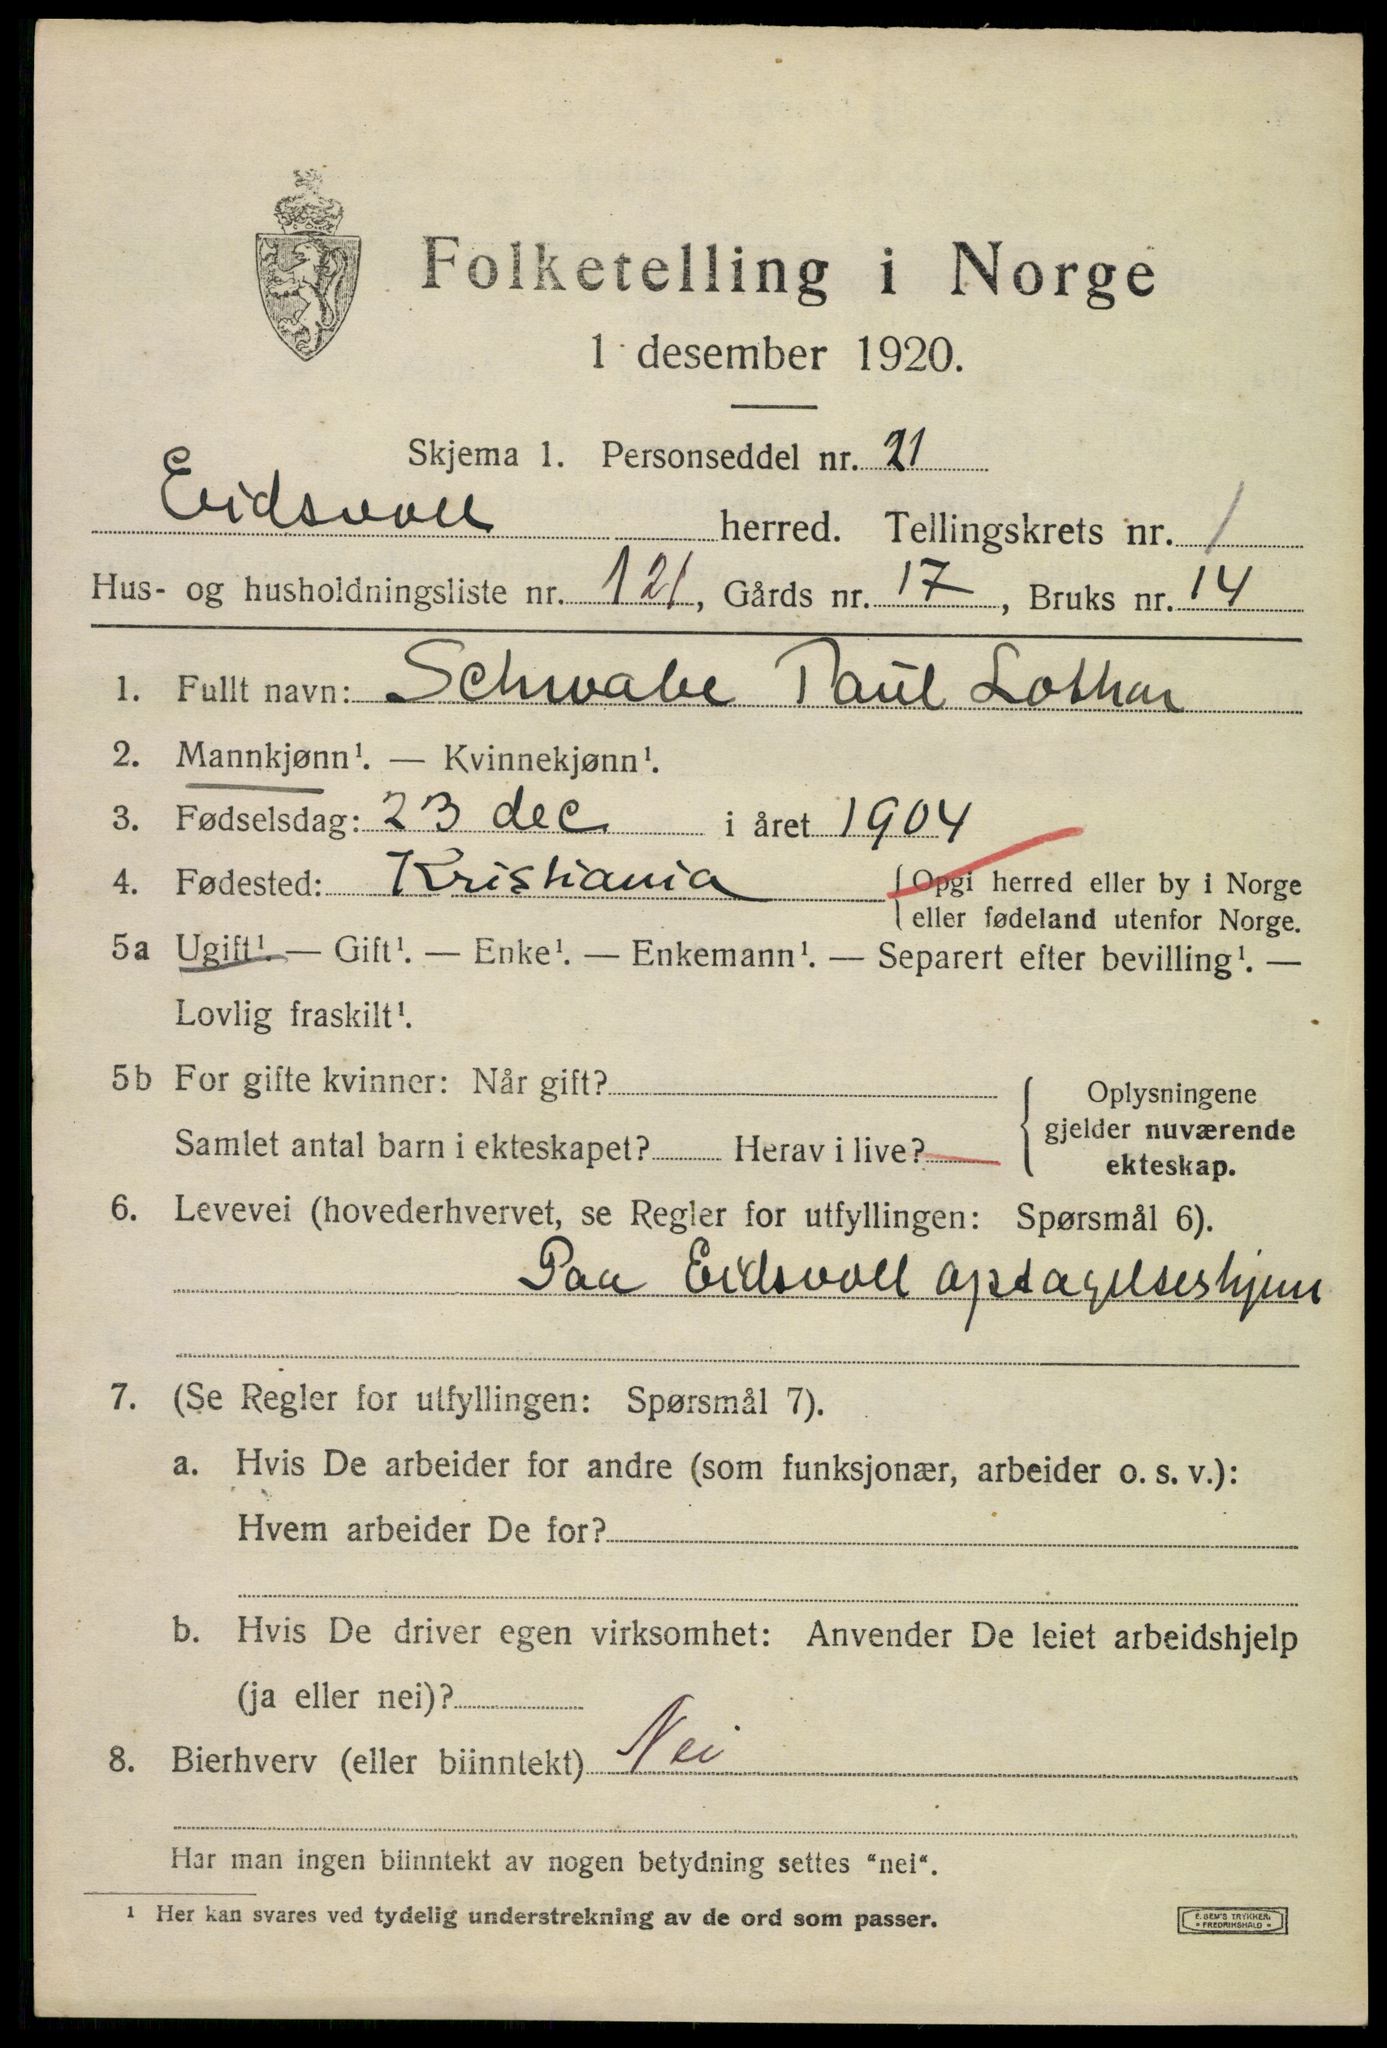 Folketelling i Norge
1 desember 1920.
Skjema 1. Personseddel nr. 21
Eidsvoll herred. Tellingskrets nr. 1
Hus- og husholdningsliste nr. 121, Gårds nr. 17, Bruks nr. 14
1. Fullt navn: Schwabe Paul Lothar
2. Mannkjønn¹. — Kvinnekjønn¹.
3. Fødselsdag: 23 dec i året 1904
4. Fødested: Kristiania { Opgi herred eller by i Norge
eller fødeland utenfor Norge.
5a Ugift¹. — Gift¹. — Enke¹. — Enkemann¹. — Separert efter bevilling¹. —
Lovlig fraskilt¹.
5b For gifte kvinner: Når gift?
Samlet antal barn i ekteskapet? Herav i live?
Oplysningene
gjelder nuværende
ekteskap.
6. Levevei (hovederhvervet, se Regler for utfyllingen: Spørsmål 6).
Paa Eidsvoll optagelseshjem
7. (Se Regler for utfyllingen: Spørsmål 7).
a. Hvis De arbeider for andre (som funksjonær, arbeider o. s. v.):
Hvem arbeider De for?
b. Hvis De driver egen virksomhet: Anvender De leiet arbeidshjelp
(ja eller nei)?
8. Bierhverv (eller biinntekt) Nei
Har man ingen biinntekt av nogen betydning settes "nei".
¹ Her kan svares ved tydelig understrekning av de ord som passer.
E. SEM'S TRYKKERI
• FREDRIKSHALD •